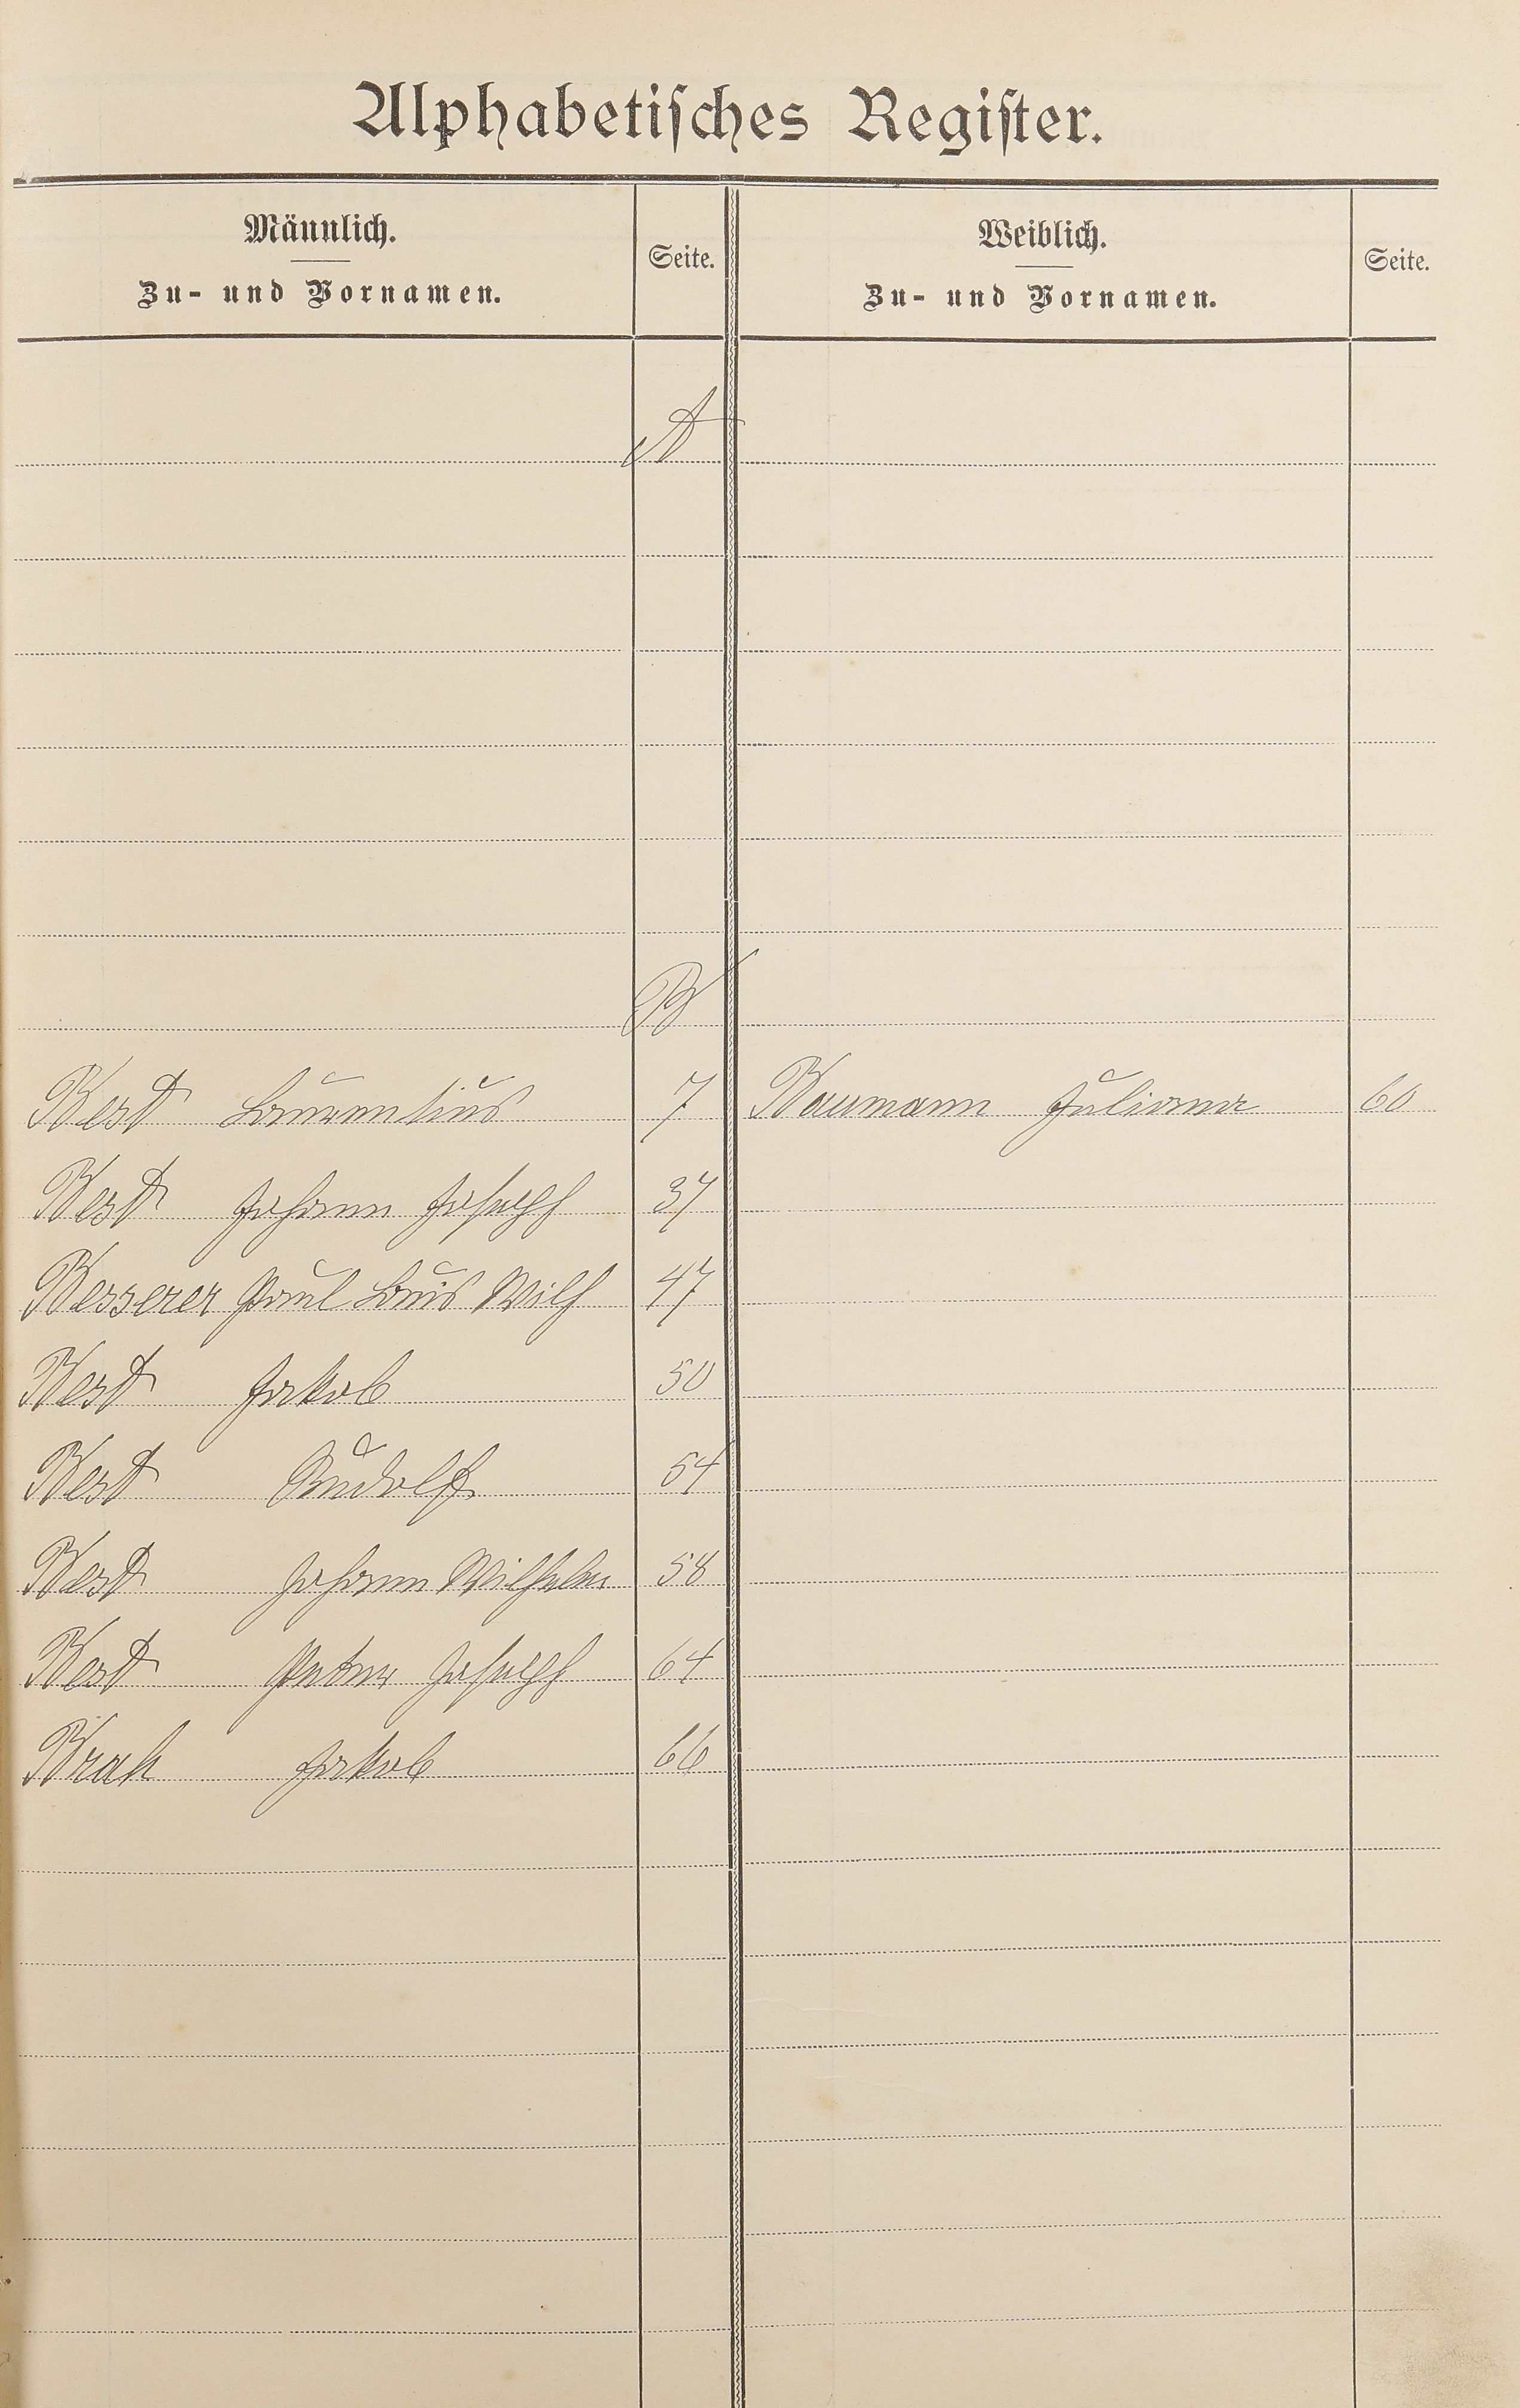 Alphabetisches Register.
Männlich.
Zu- und Vornamen.
Seite.
Weiblich.
Zu- und Vornamen.
Seite.
A
B
Best Laurentius 7 Baumann Juliana 60
Best Johann Joseph 37
Besserer Paul Louis Wilh 47
Best Jakob 50
Best Rudolf 54
Best Johann Wilhelm 58
Best Peter Joseph 64
Brah Jakob 66